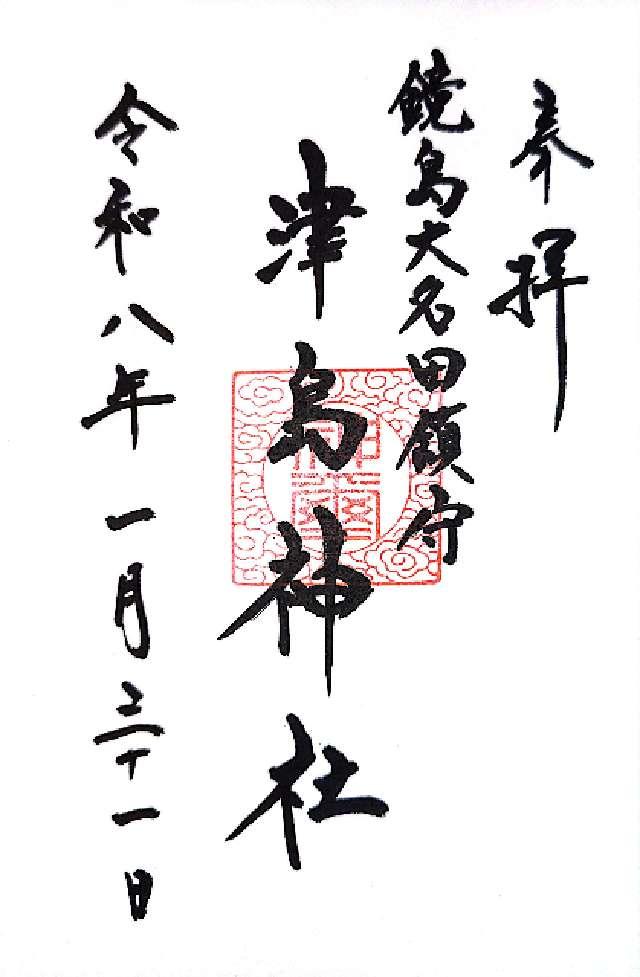 奉拝
鏡島大名田鎮守
津島神社
令和八年一月三十一日